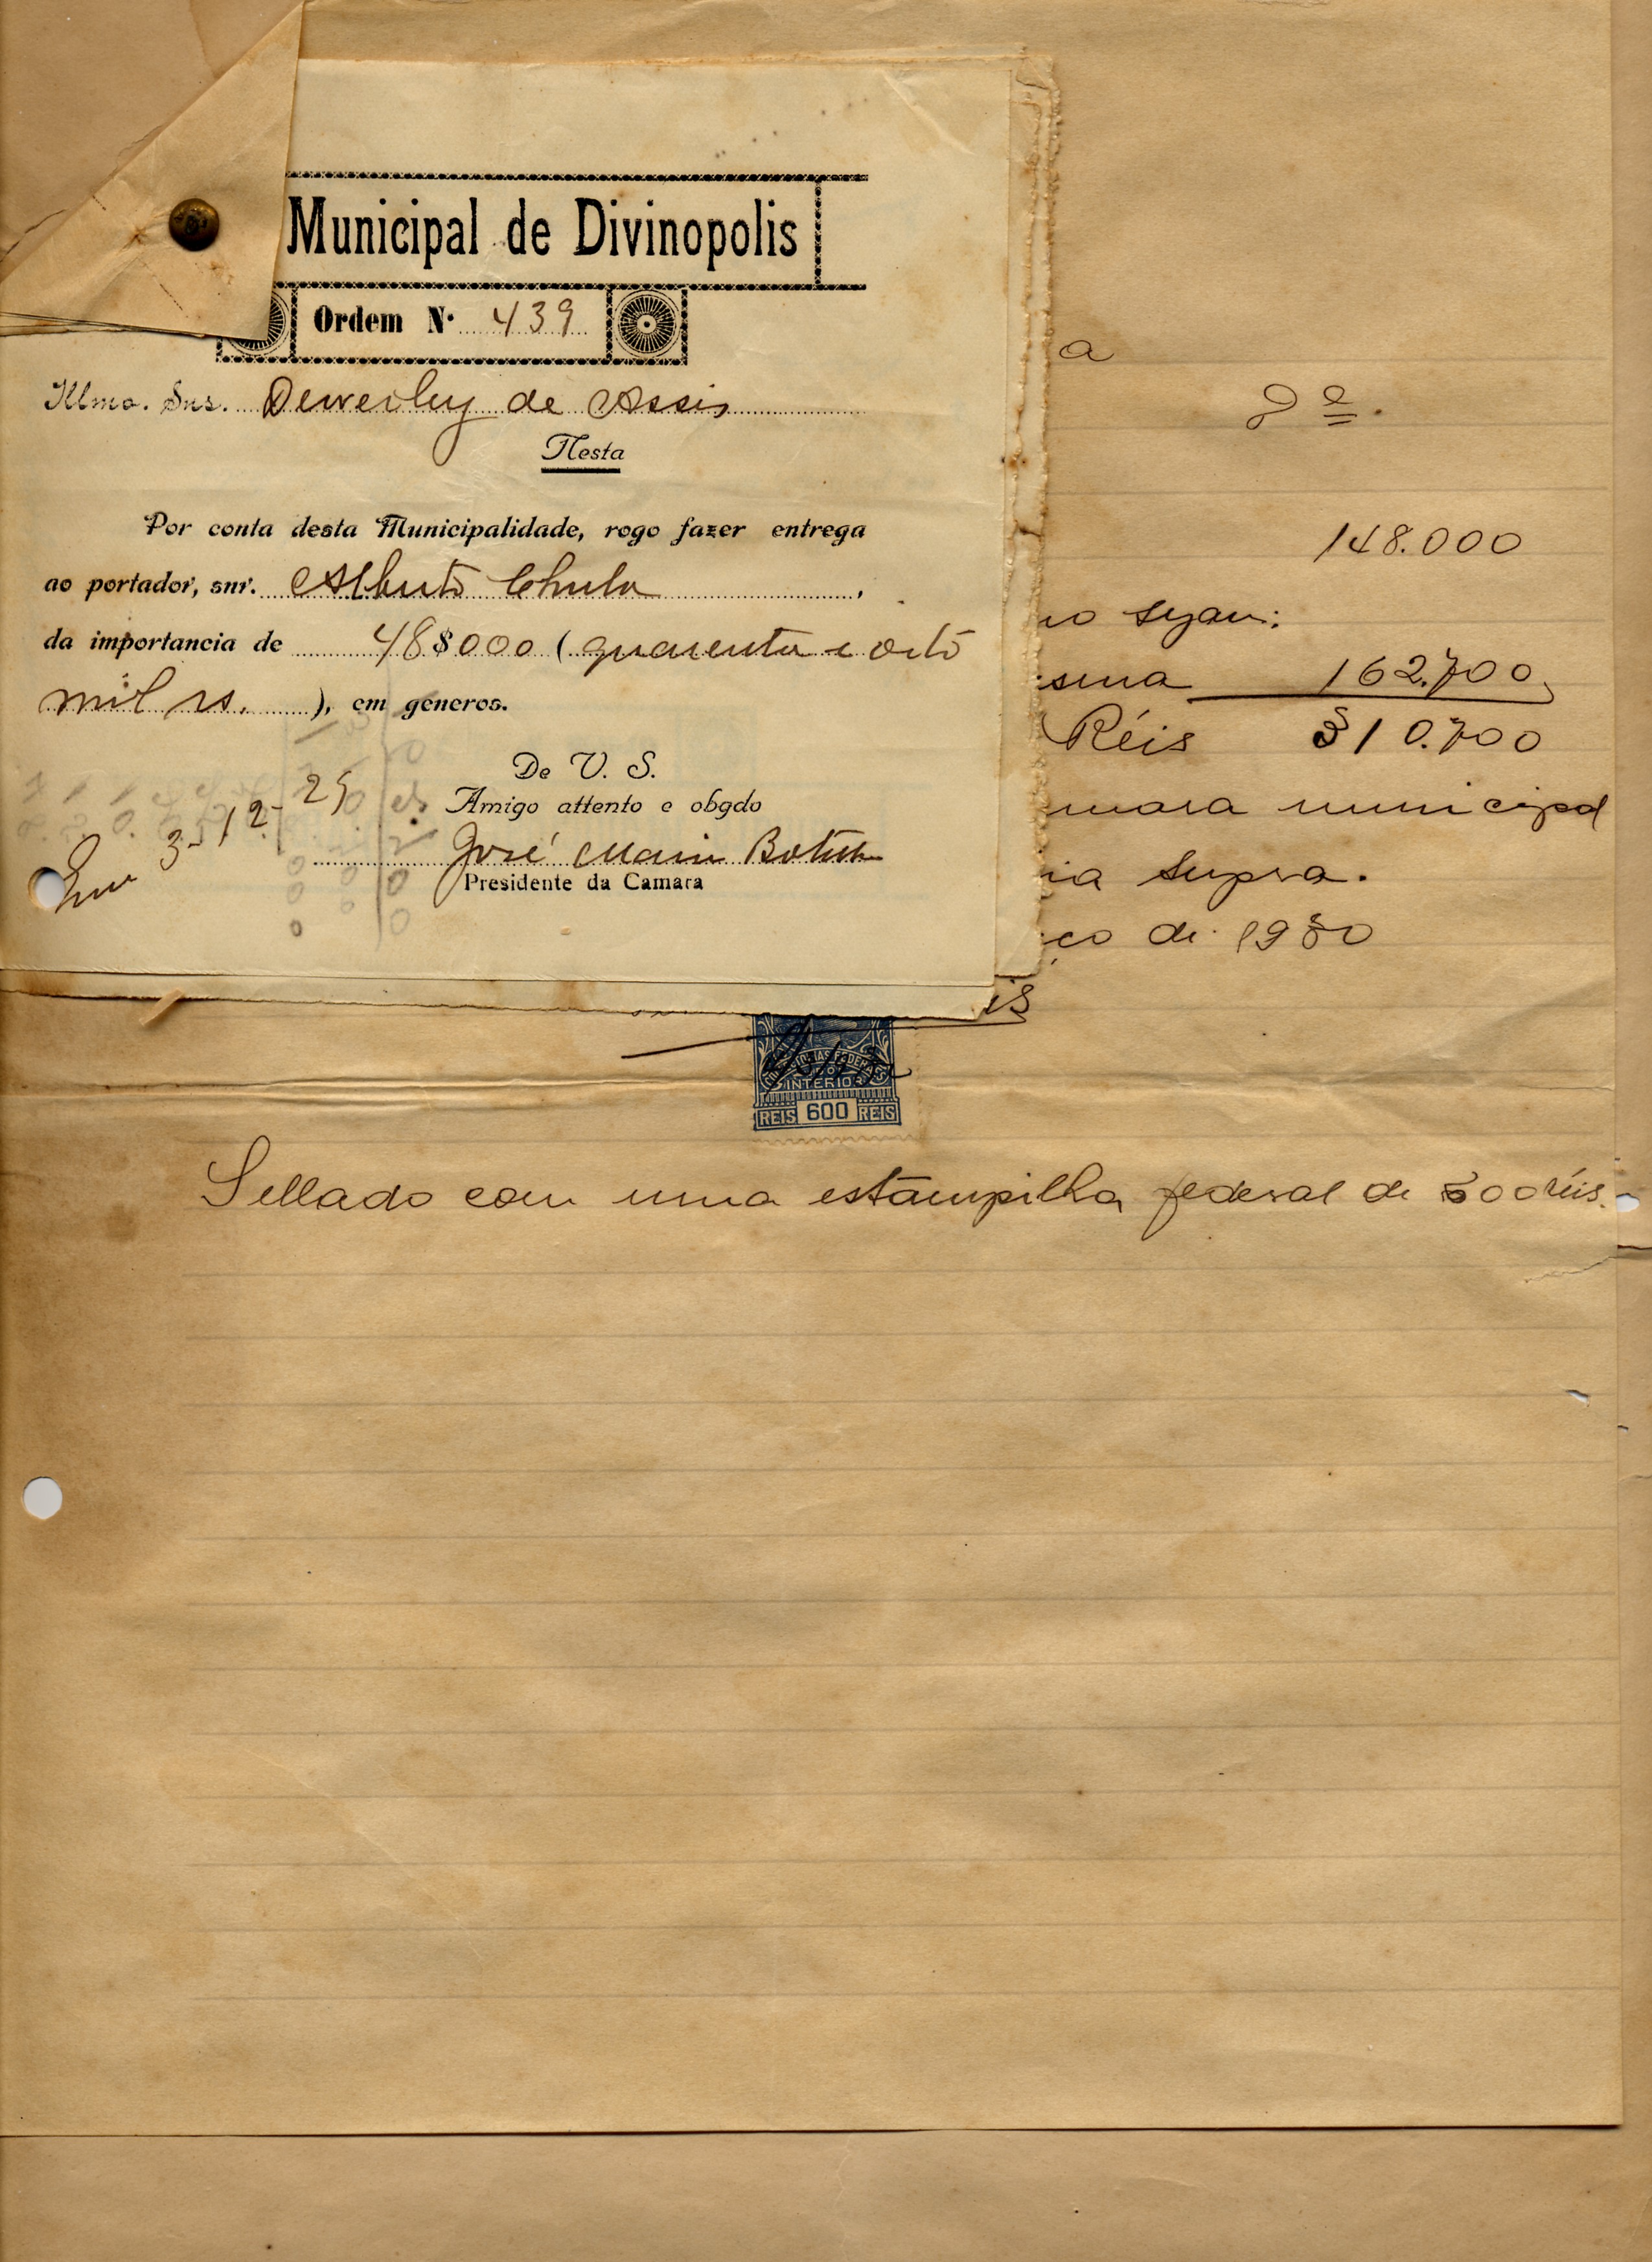 Municipal de Divinopolis
Ordem N· 439
Illmo. Snr. Dewerley de Assis
Nesta
Por conta desta Municipalidade, rogo fazer entrega
ao portador, snr. Alberto Chula,
da importancia de 48$000 (quarenta e oito
mil rs.), em generos.
De V. S.
Amigo attento e obgdo
Em 3-12-29
José Maria Botelho
Presidente da Camara
a
148.000
162.700
Réis 310.700
mara municipal
ia supra.
ço de 1930
is
INTERIOR
REIS 600 REIS
Sellado com uma estampilha federal de 600 réis.